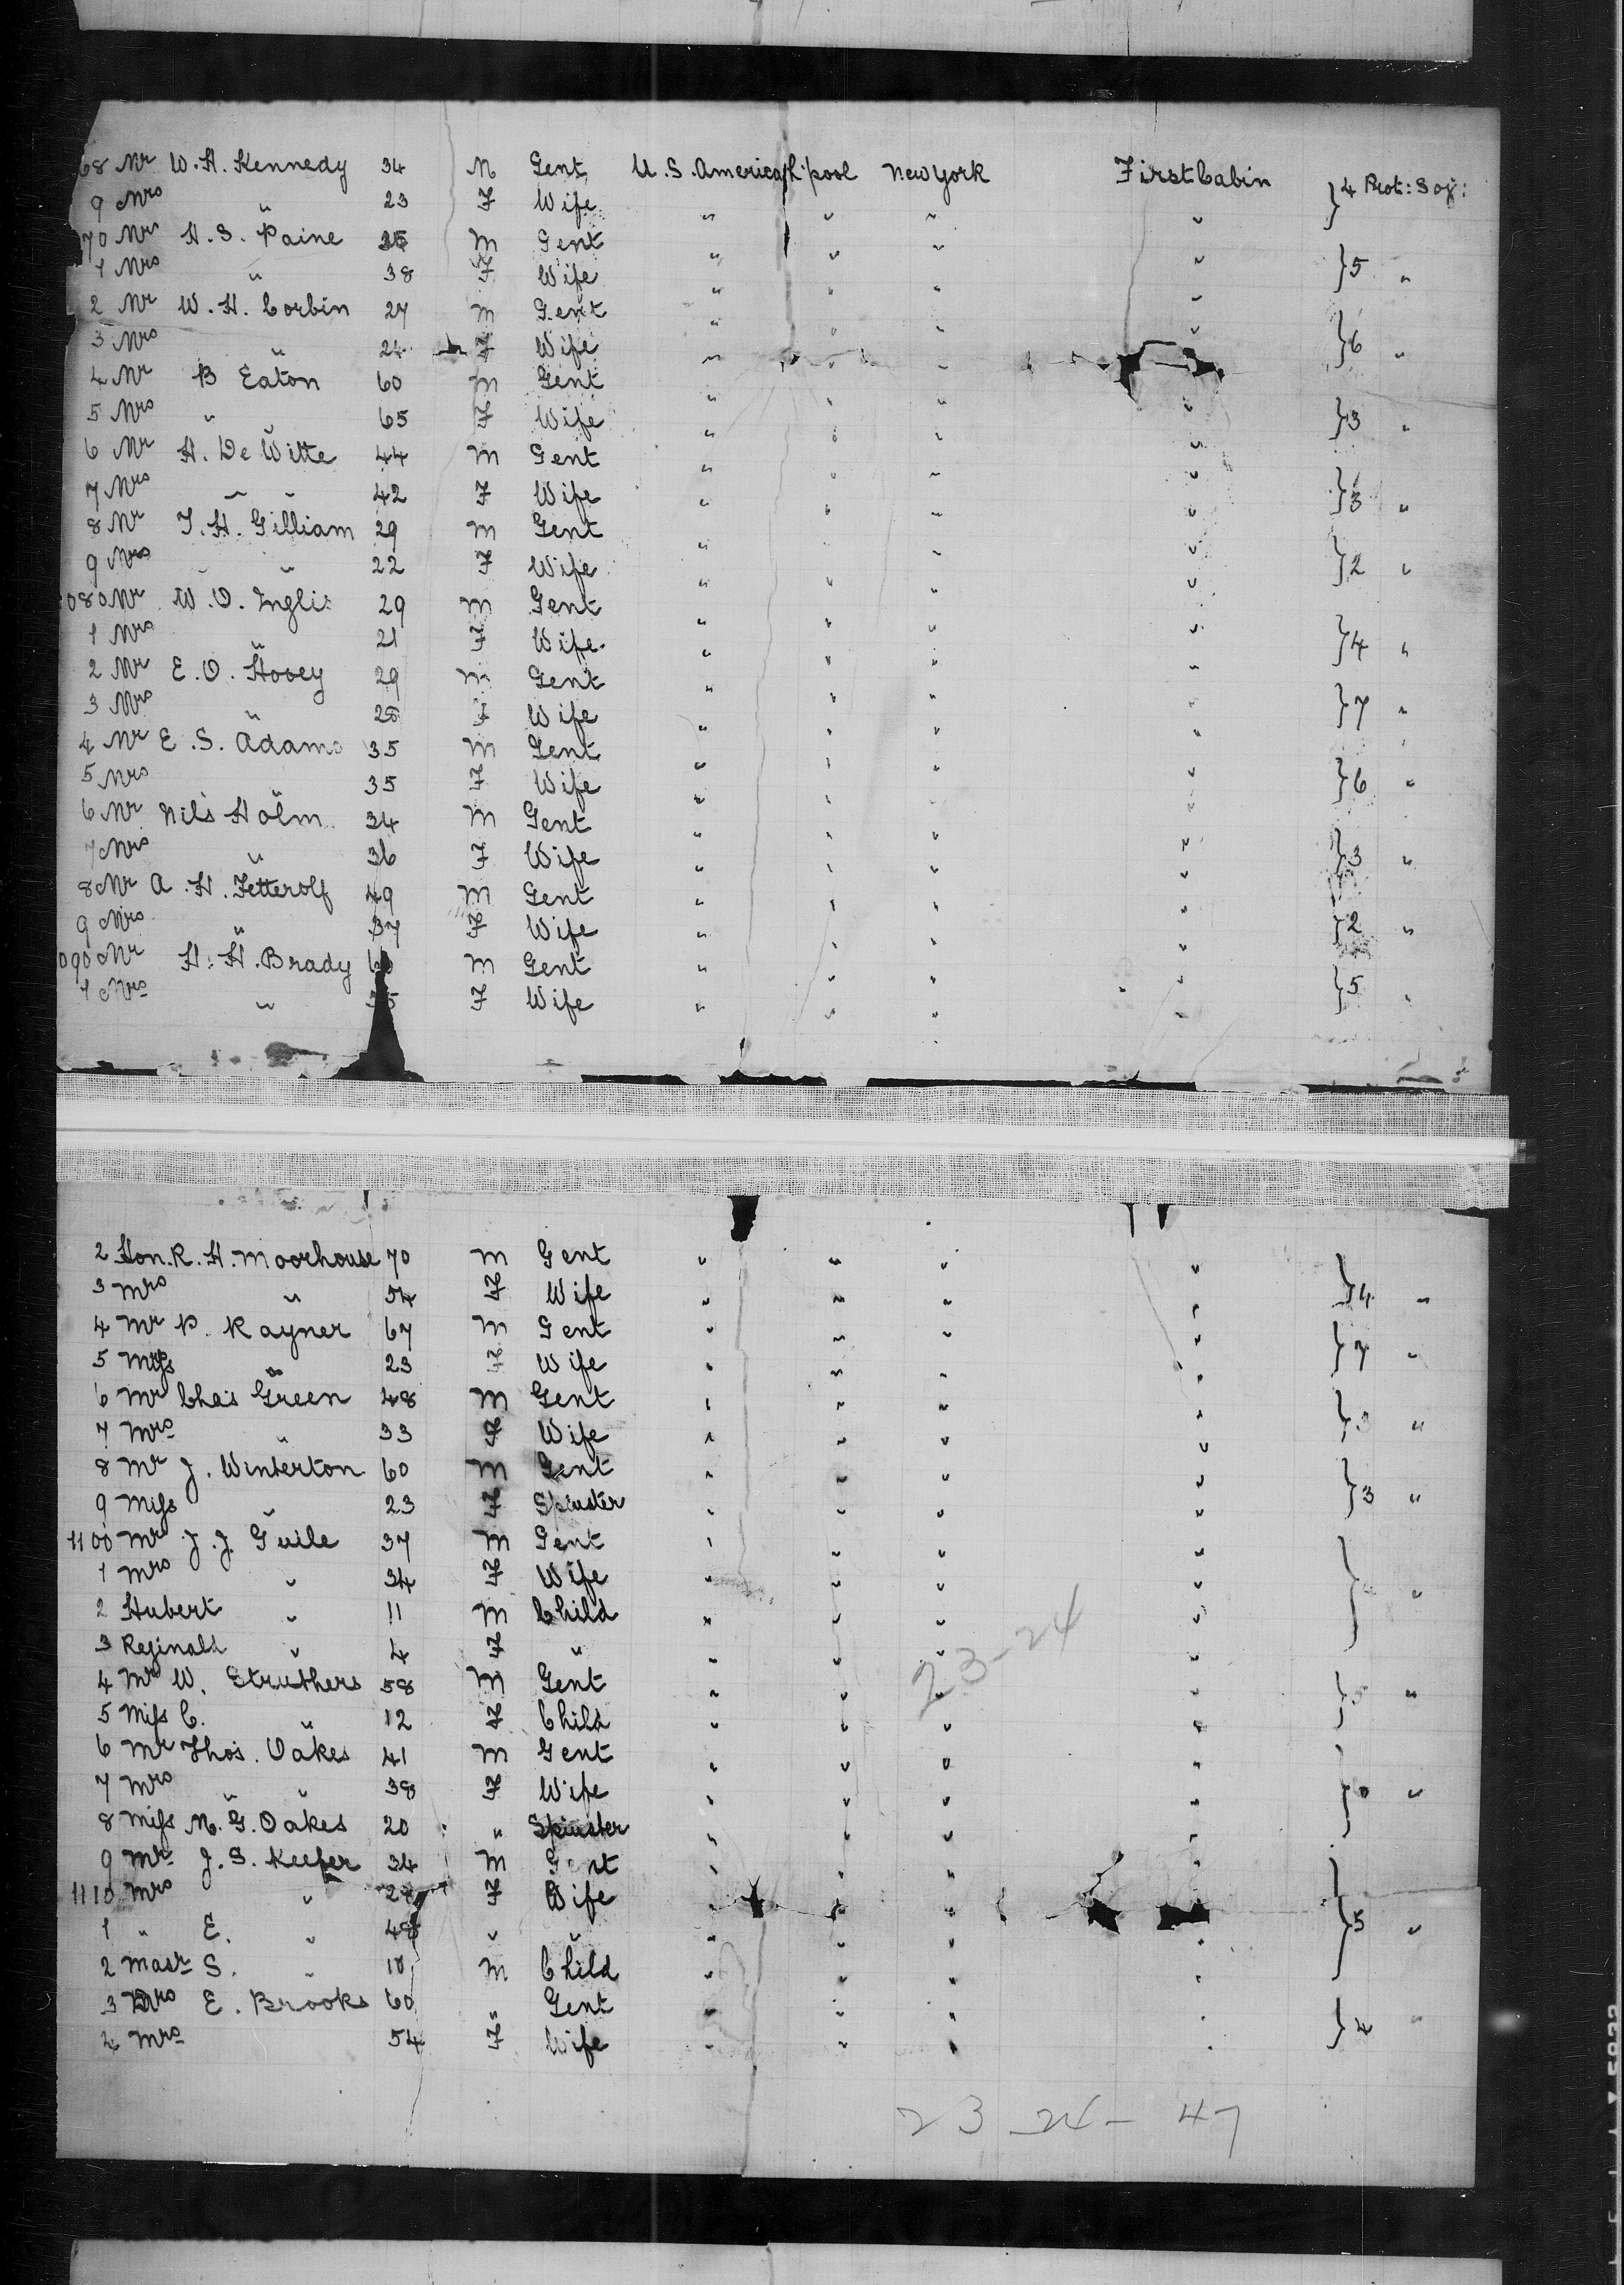 68 Mr W. H. Kennedy 34 M Gent U.S. America L'pool New York First Cabin } 4 Prot: Soj:
9 Mrs " 23 F Wife " " " "
70 Mr H. S. Paine M Gent " " " " } 5 "
1 Mrs " 38 F Wife " " " "
2 Mr W. H. Corbin 27 m Gent " " " " } 6 "
3 Mrs " 24 F Wife " " " "
4 Mr B Eaton 60 m Gent " " " " } 3 "
5 Mrs " 65 F Wife " " " "
6 Mr H. De Witte 44 M Gent " " " " } 3 "
7 Mrs " " 42 F Wife " " " "
8 Mr T. H. Gilliam 29 m Gent " " " " } 2 "
9 Mrs " " 22 F Wife " " " "
080 Mr W. O. Inglis 29 m Gent " " " " } 4 "
1 Mrs " 21 F Wife " " " "
2 Mr E. O. Hovey 29 m Gent " " " " } 7 "
3 Mrs " F Wife " " " "
4 Mr E. S. Adams 35 M Gent " " " " } 6 "
5 Mrs " 35 F Wife " " " "
6 Mr Nils Holm 34 M Gent " " " " } 3 "
7 Mrs " 36 F Wife " " " "
8 Mr A. H. Fetterolf 49 M Gent " " " " } 2 "
9 Mrs " 37 F Wife " " " "
090 Mr H. H. Brady M Gent " " " " } 5 "
1 Mrs " F Wife " " " "
2 Hon. R. H. Moorhouse 70 M Gent " " " " } 4 "
3 Mrs " 54 F Wife " " " "
4 Mr P. Rayner 67 M Gent " " " " } 7 "
5 " 23 F Wife " " " "
6 Mr Chas Green 48 M Gent " " " " } 3 "
7 Mrs " 33 F Wife " " " "
8 Mr J. Winterton 60 M Gent " " " " } 3 "
9 Miss " 23 F Spinster " " " "
1100 Mr J. J. Guile 37 M Gent " " " " } "
1 Mrs " 34 F Wife " " " "
2 Hubert " 11 M Child " " " "
3 Reginald " 4 F " " " " "
23-24
4 Mr W. Struthers 58 M Gent " " " " } "
5 Miss C. " 12 F Child " " " "
6 Mr Thos. Oakes 41 M Gent " " " " } "
7 Mrs " " 38 F Wife " " " "
8 Miss N. G. Oakes 20 " Spinster " " " "
9 Mr J. S. Keefer 34 M Gent " " " " } 5 "
1110 Mrs " F Wife " " " "
1 " E. " 48 " " " " " "
2 Mastr S. " 10 M Child " " " "
3 E. Brooks 60 " Gent " " " " } 4 "
4 Mrs 54 F Wife " " " "
23 - 24 - 47